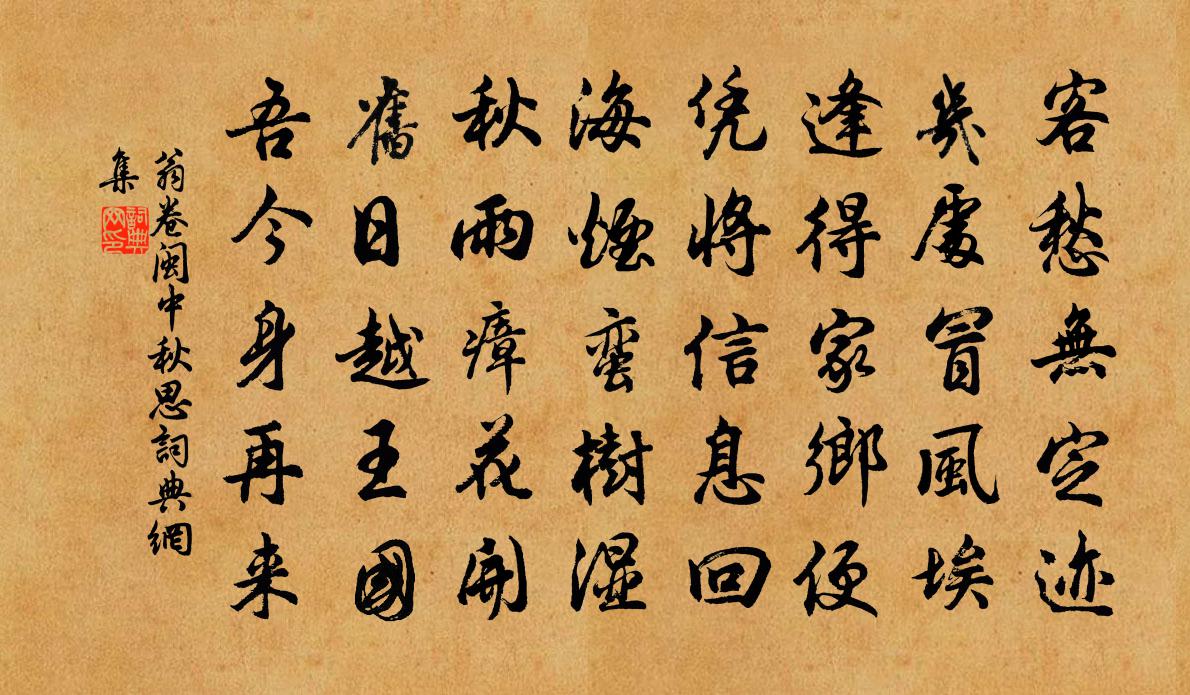 客愁無定迹
幾處冒風埃
逢得家鄉便
凭將信息回
海煙蛮樹濕
秋雨瘴花開
舊日越王國
吾今身再来
翁卷闽中秋思詞典網
集
詞典
网印